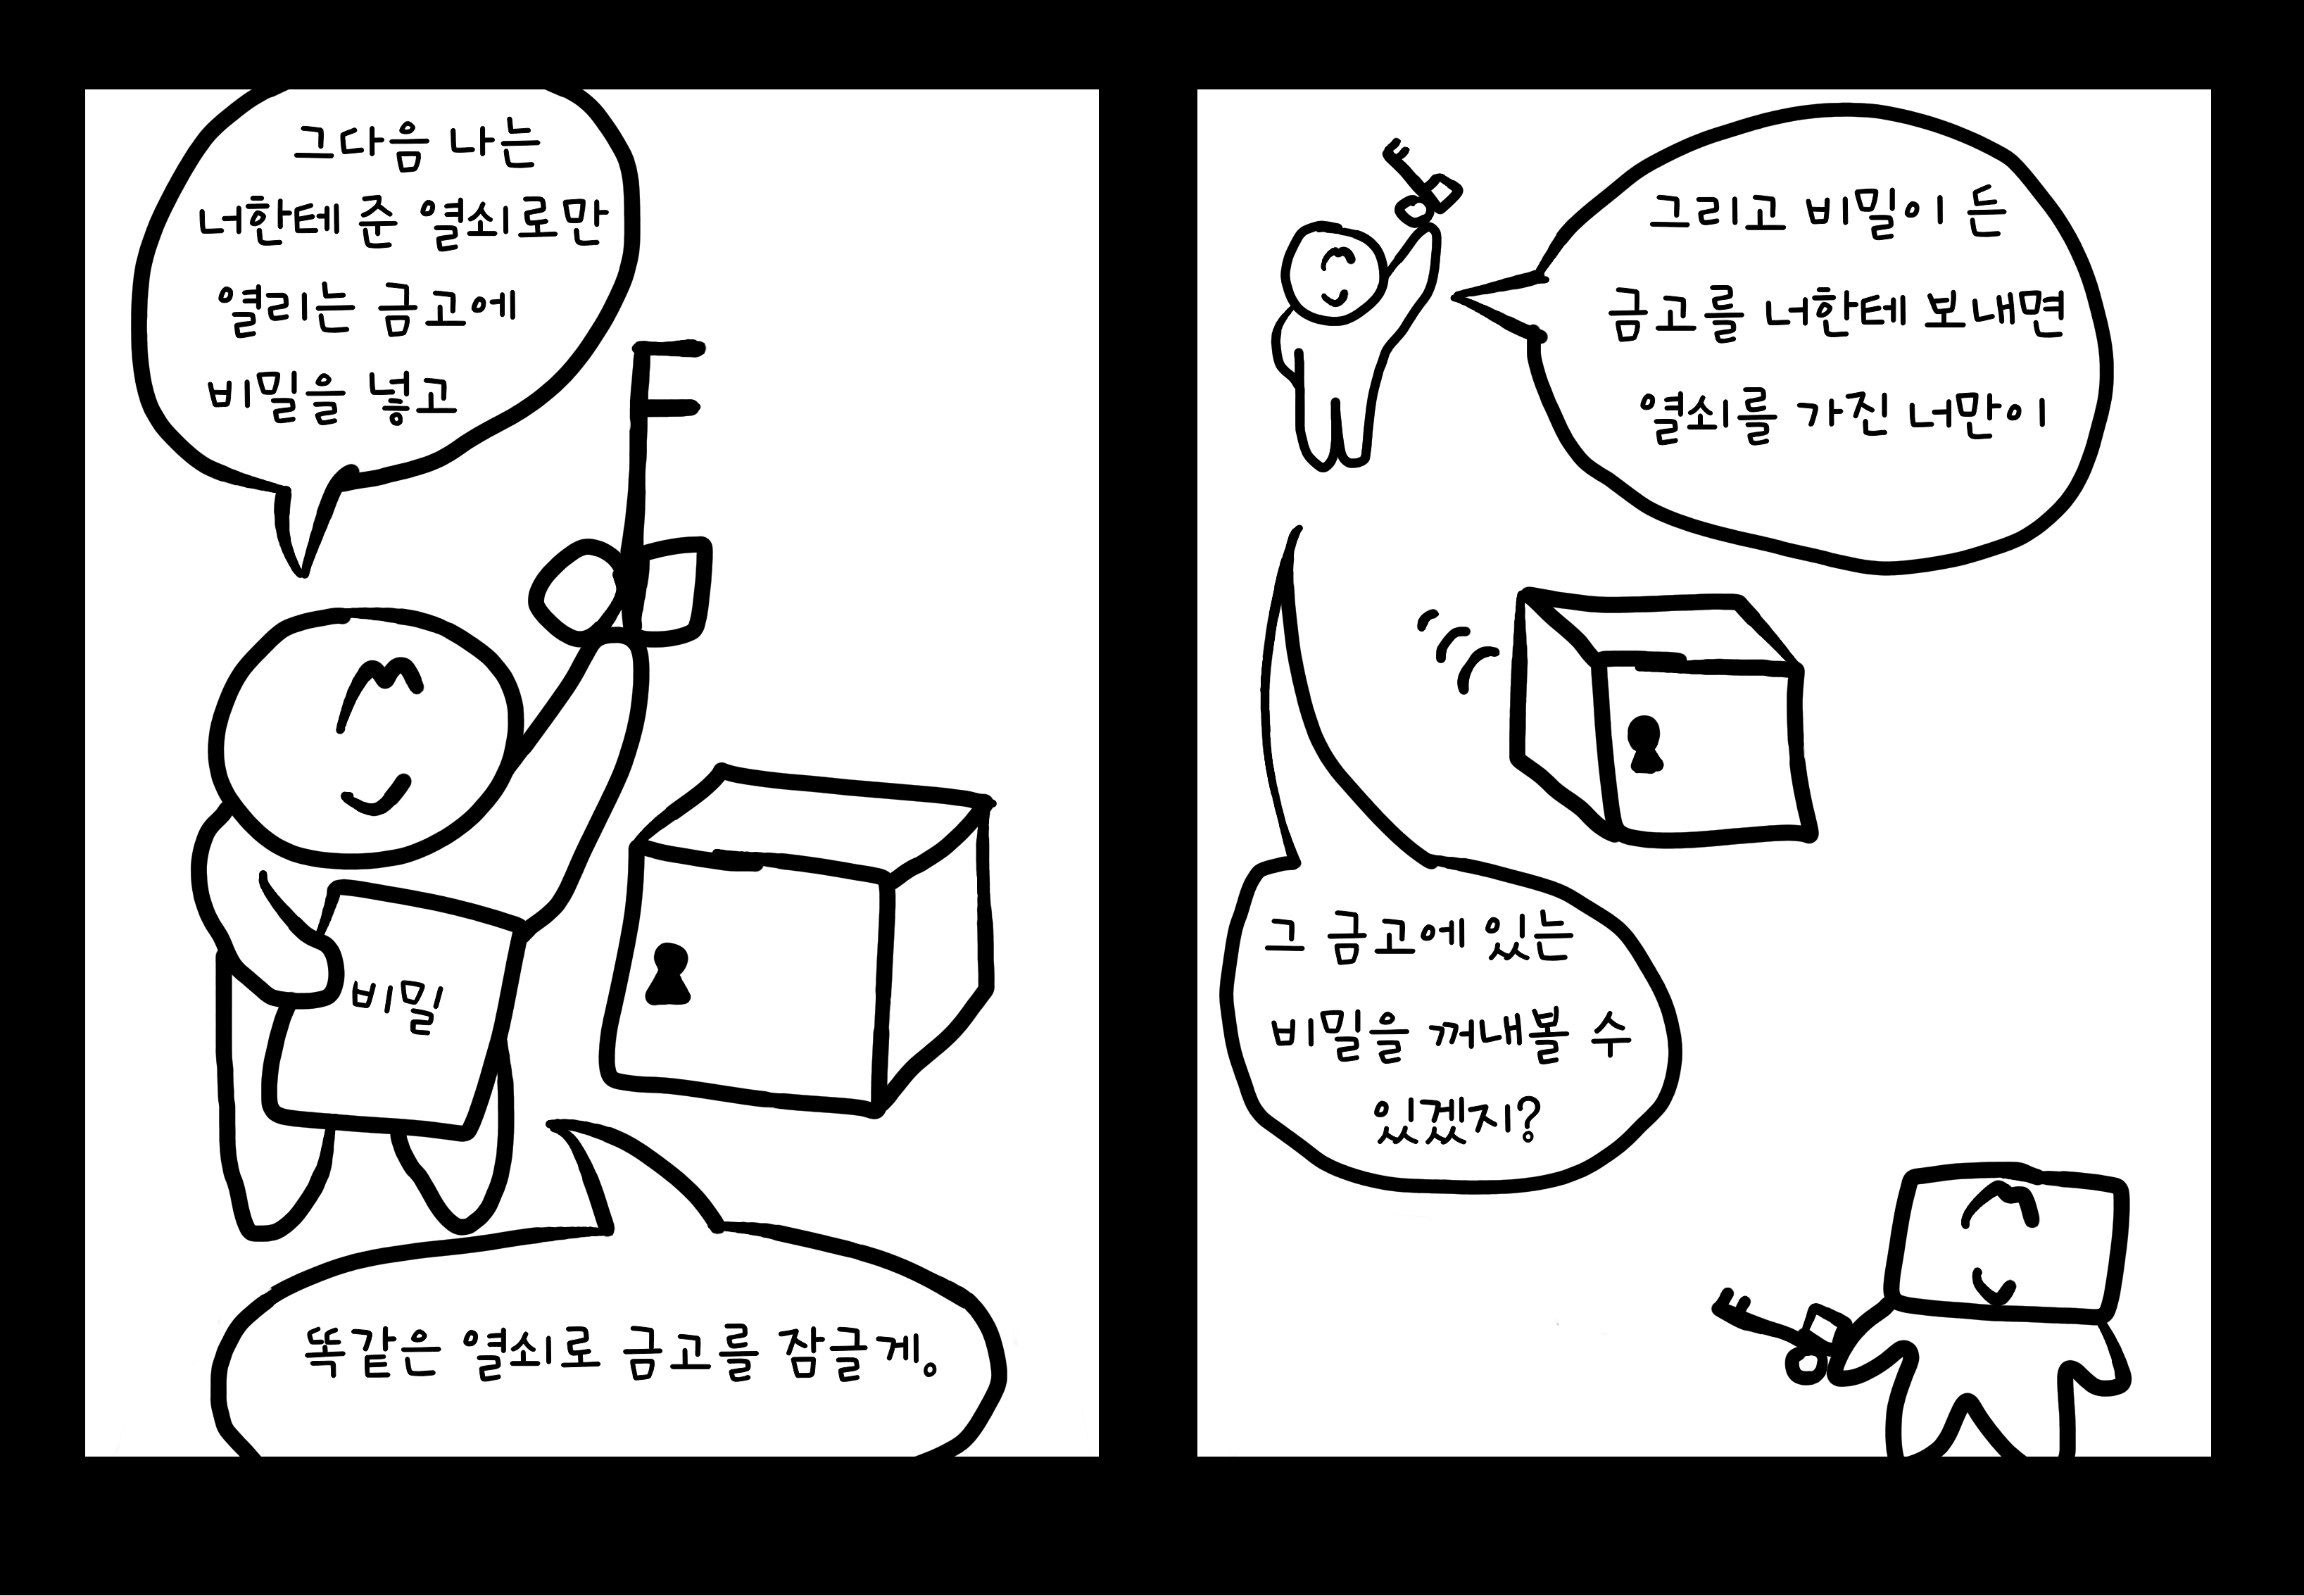 그다음 나는
너한테 준 열쇠로만
열리는 금고에
비밀을 넣고
비밀
똑같은 열쇠로 금고를 잠글게。
그리고 비밀이 든
금고를 너한테 보내면
열쇠를 가진 너만이
그 금고에 있는
비밀을 꺼내볼 수
있겠지?